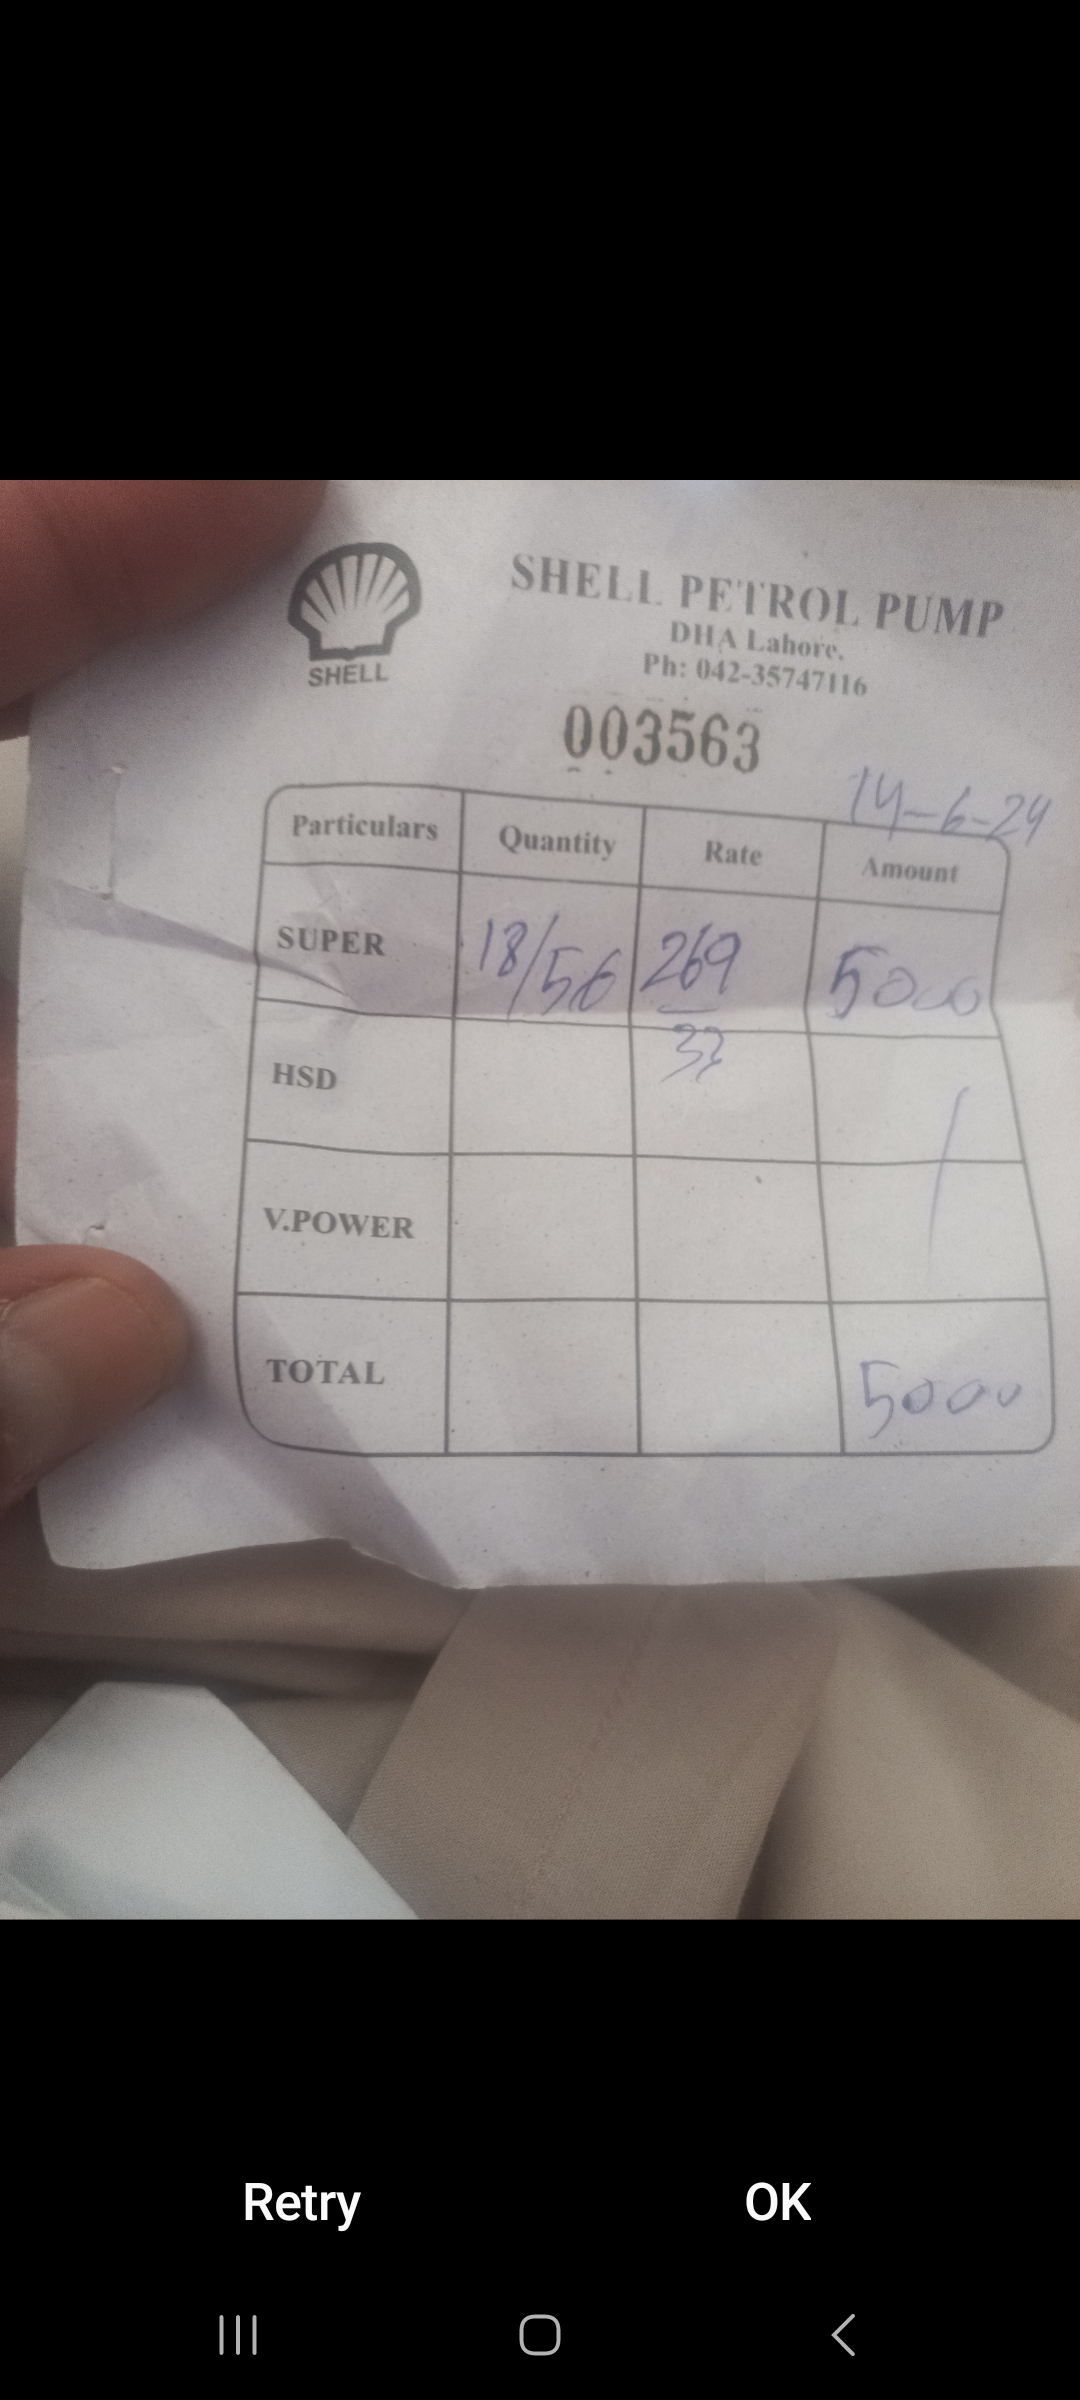 SHELL PETROL PUMP
DHA Lahore.
Ph: 042-35747116
SHELL
003563
14-6-24
Particulars Quantity Rate Amount
SUPER 18/56 269 5000
33
HSD
V.POWER
TOTAL 5000
Retry OK